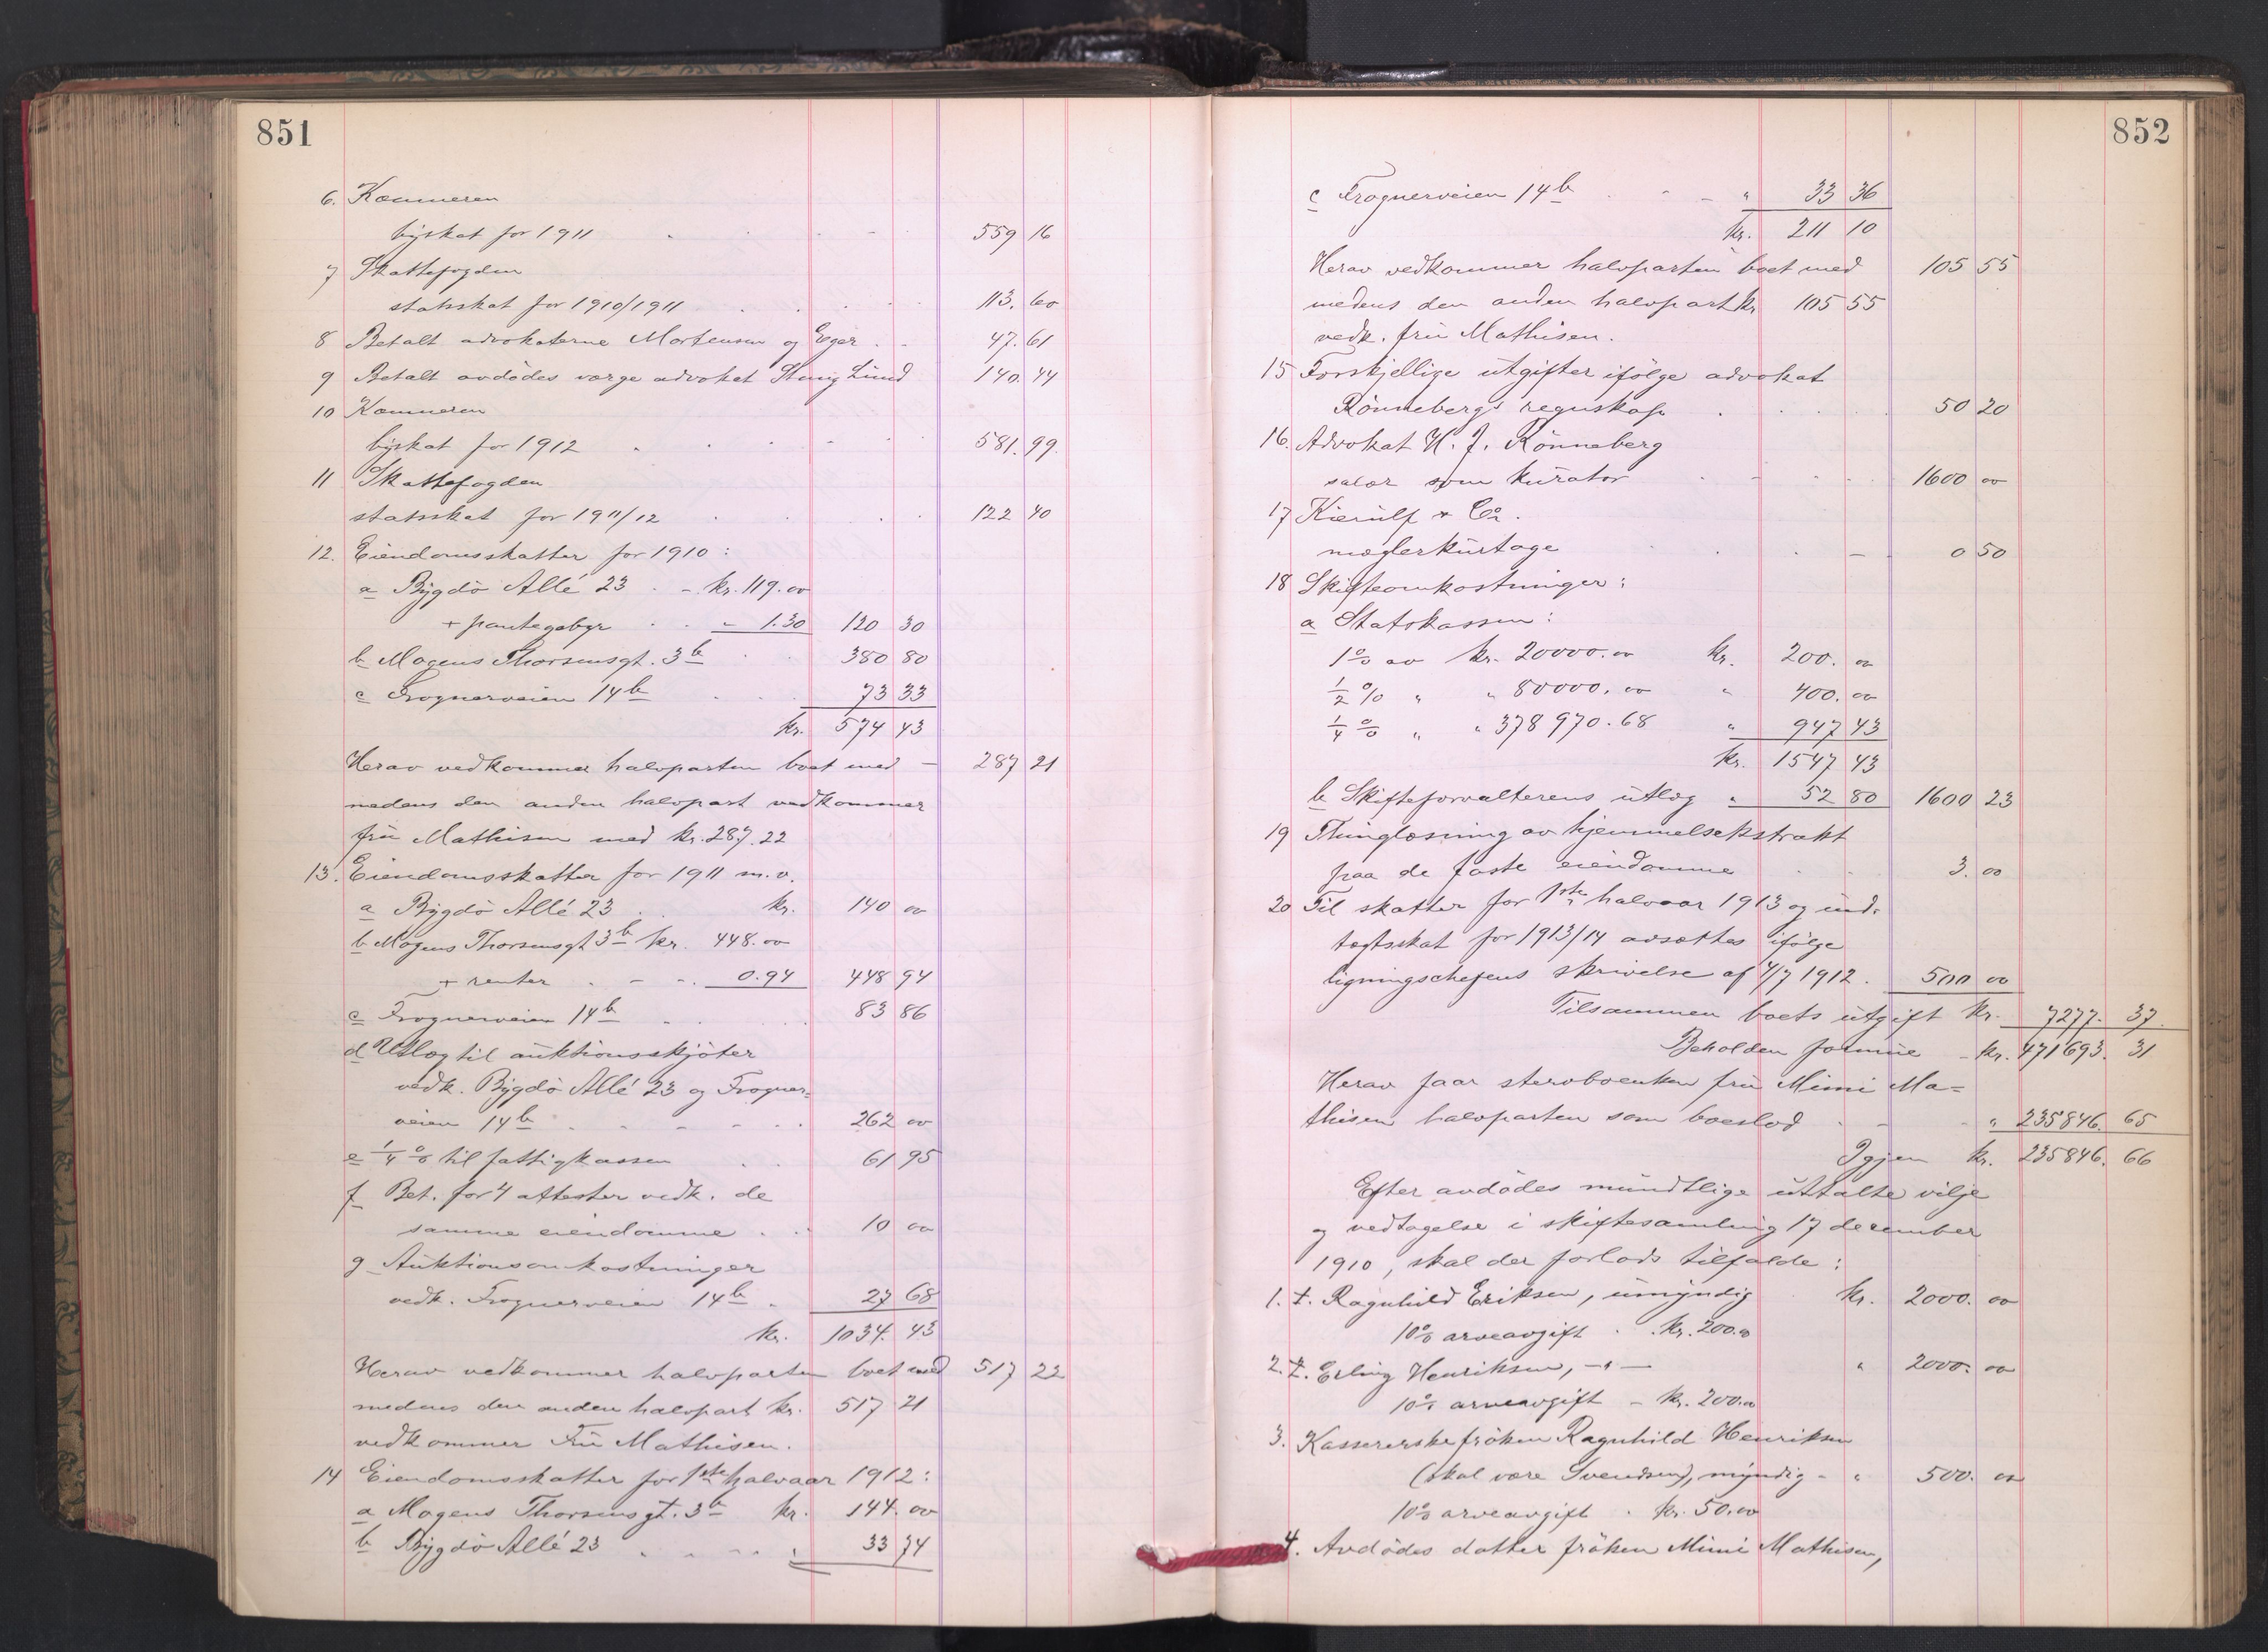 851
6. Kæmneren
byskat for 1911 559 16
7 Skattefogden
statsskat for 1910/1911 113. 60
8 Betalt advokaterne Mortensen og Eger 47. 61
9 Betalt avdødes værge advokat Stenig Lund 140. 44
10 Kæmneren
byskat for 1912 581. 99.
11 Skattefogden
statsskat for 1911/12 122 40
12. Eiendomsskatter for 1910:
a Bygdö Allé 23 - kr. 119.00
+ pantegebyr " 1.30 120 30
b Mogens Thorsensgt. 3b 380 80
c Frognerveien 14b 73 33
kr. 574 43
Herav vedkommer halvparten boet med 287 21
medens den anden halvpart vedkommer
fru Mathisen med kr. 287.22
13. Eiendomsskatter for 1911 m.v.
a Bygdö Allé 23 kr. 140 00
b Mogens Thorsensgt 3b kr. 448.00
+ renter - - 0.94 448 94
c Frognerveien 14b 83 86
d Utlæg til auktionsskjöter
vedk. Bygdö Allé 23 og Frogner=
veien 14b 262 00
e 1/4 % til fattigkassen 61 95
f Bet. for 4 attester vedk. de
samme eiendomme 10 00
g Auktionsomkostninger
vedk. Frognerveien 14b 27 68
kr. 1034. 43
Herav vedkommer halvparten boet med 517 22
medens den anden halvpart kr. 517 21
vedkommer Fru Mathisen.
14 Eiendomsskatter for 1ste halvaar 1912:
a Mogens Thorsensgt. 3b kr. 144. 00
b Bygdö Allé 23 " 33 74
852
c Frognerveien 14b " 33 36
kr. 211 10
Herav vedkommer halvparten boet med 105 55
medens den anden halvpart kr 105 55
vedk. fru Mathisen.
15 Forskjellige utgifter ifölge advokat
Rönnebergs regnskap 50 20
16. Advokat H. J. Rönneberg
salær som kurator 1600 00
17 Kierulf & Co.
mæglerkurtage 0 50
18 Skifteomkostninger:
a Statskassen:
1% av kr. 20000.00 kr. 200. 00
1/2 % " " 80000.00 " 400. 00
1/4 % " " 378970.68 " 947 43
kr. 1547 43
b Skifteforvalterens utlæg " 52 80 1600 23
19 Thinglæsning av hjemmelsekstrakt
paa de faste eiendomme 3. 00
20 Til skatter for 1ste halvaar 1913 og ind-
tægtsskat for 1913/14 avsættes ifölge
ligningschefens skrivelse af 4/7 1912. 500 00
Tilsammen boets utgift kr. 7277. 37.
Beholden formue - kr. 471693. 31
Herav faar stervboenken fru Mimi Ma=
thisen halvparten som boeslod " 235846. 65
Igjen kr. 235846. 66
Efter avdödes mundtlige uttalte vilje
og vedtagelse i skiftesamling 17 december
1910, skal der forlods tilfalde:
1. †. Ragnhild Eriksen, umyndig kr. 2000. 00
10% arveavgift . kr. 200.00
2. †. Erling Henriksen, -"- " 2000. 00
10% arveavgift - kr. 200.00
3. Kassererske fröken Ragnhild Henriksen
(skal være Svendsen), myndig - " 500. 00
10% arveavgift . kr. 50.00
4. Avdödes datter fröken Mimi Mathisen,